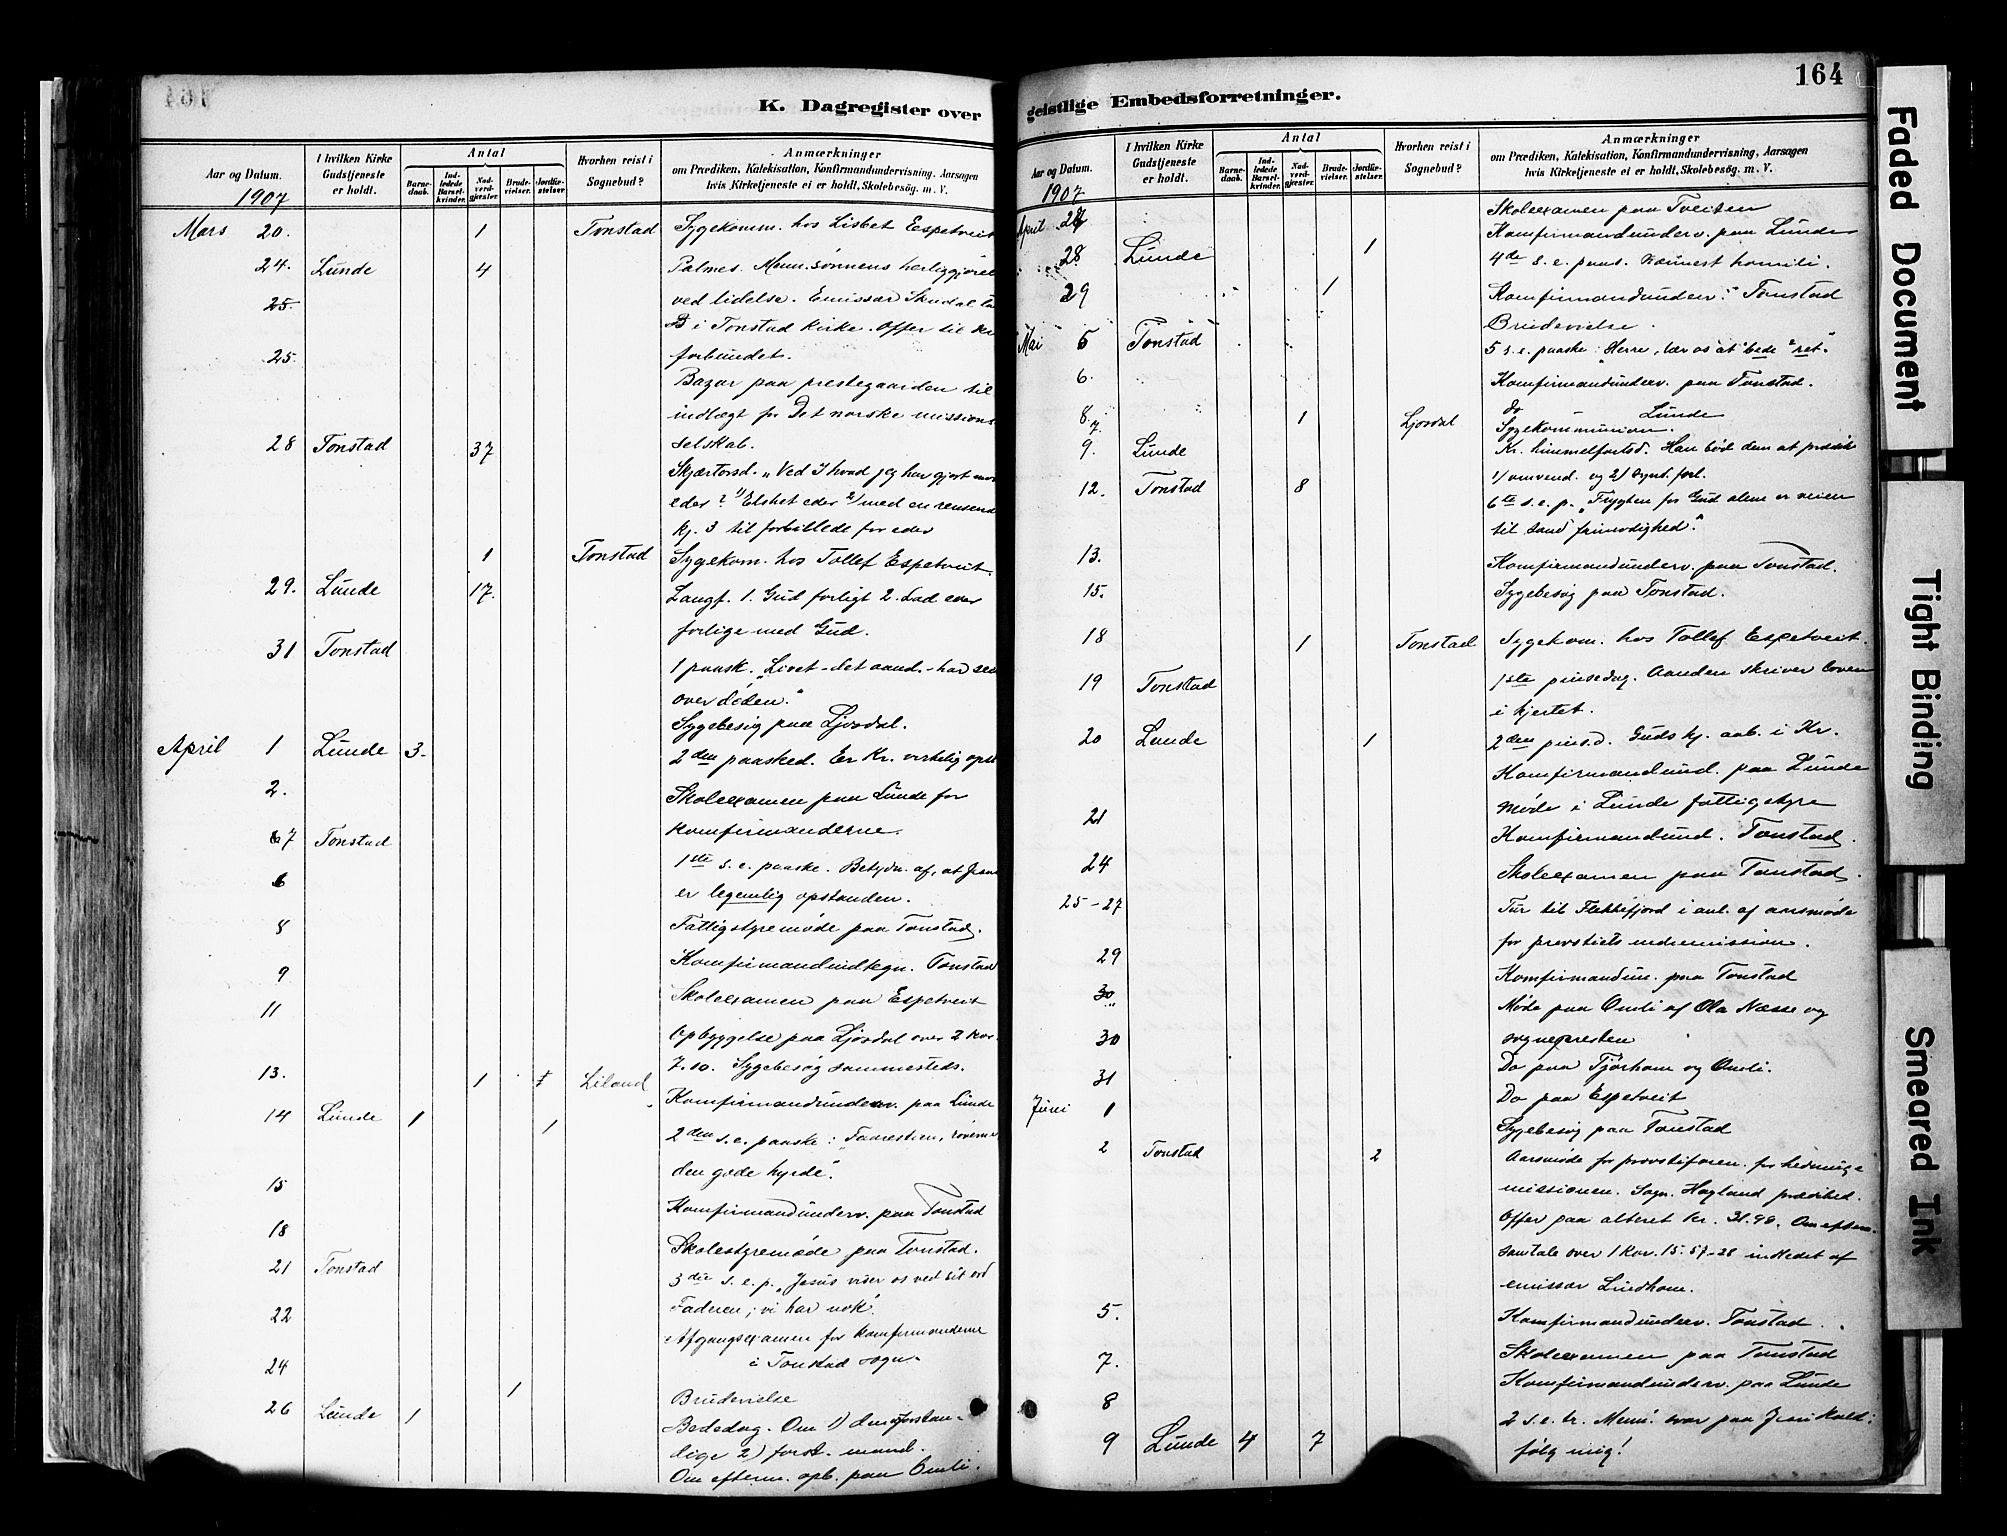 164
K. Dagregister over
Aar og Datum.
1907
I hvilken Kirke Gudstjeneste er holdt.
Antal
Barnedaab.
Indledede Barselkvinder.
Nadverdgjester.
Brudevielser.
Jordfæstelser.
Hvorhen reist i Sognebud?
Anmærkninger
om Prædiken, Katekisation, Konfirmandundervisning, Aarsagen
hvis Kirketjeneste ei er holdt, Skolebesög. m. V.
Mars 20. 1 Tonstad Sygekomm. hos Lisbet Espetveit
24. Lunde 4 Palmes. Menn.sønnens herliggjørel
25. ved lidelse. Emissær
i Tonstad kirke. Offer til
25. forbundet.
Bazar paa prestegaarden til
indtægt for Det norske missions
selskab.
28 Tonstad 37
Skjærtorsd. "Ved I hvad jeg har gjort mod
eder? 1) Elsket eder 2) med en rensende
kj. 3 til forbillede for eder
1 Tonstad Sygekom. hos Tollef Espetveit.
29. Lunde 17. Langf. 1. Gud forligt 2. Lad eder
forlige med Gud.
31 Tonstad
1 paask. "Livet - det aand. - har sei
over døden."
Sygebesøg paa Ljosdal.
April 1 Lunde 3. 2den paasked. Er Kr. virkelig opst
2. Skoleexamen paa Lunde for
konfirmanderne.
7 Tonstad
1ste s. e. paaske. Betydn. af, at Jesus
6 er legemlig opstanden.
8 Fattigstyremøde paa Tonstad.
Konfirmandindtegn. Tonstad
9 Skoleexamen paa Espetveit
11 Opbyggelse paa Ljosdal over 2 Kor.
7.10. Sygebesøg sammesteds.
13. 1 Liland
Konfirmandunderv. paa Lunde
14 Lunde 1 1
2den s. e. paaske: Faarestien, røverne
den gode hyrde".
15 Konfirmandunderv. paa Tonstad
18 Skolestyremøde paa Tonstad.
21 Tonstad 3die s. e. p. "Jesus viser os ved sit ord
22 Faderen; vi har nok".
Afgangsexamen for konfirmanderne
24 i Tonstad sogn.
1 Brudevielse
26 Lunde 1 Bededag. Om 1) den uforstan-
dige 2) forst. mand.
Om efterm. opb. paa Omli.
geistlige Embedsforretninger.
164
Aar og Datum.
1907
I hvilken Kirke Gudstjeneste er holdt.
Antal
Barnedaab.
Indledede Barselkvinder.
Nadverdgjester.
Brudevielser.
Jordfæstelser.
Hvorhen reist i Sognebud?
Anmærkninger
om Prædiken, Katekisation, Konfirmandundervisning, Aarsagen
hvis Kirketjeneste ei er holdt, Skolebesøg. m. V.
Skoleexamen paa Tveiten
April 27 Konfirmandunderv. paa Lunde
28 Lunde 1 4de s. e. paas. homili.
29 1 Konfirmandunderv. Tonstad
Brudevielse.
Mai 5 Tonstad 5 s. e. paaske: Herre, lær os at bede "ret."
6. Konfirmandunderv. paa Tonstad.
do Lunde
8. 7 1 Ljosdal Sygekommunion.
9. Lunde Kr. himmelfartsd. Han bød dem at prædik
1/ omvend. og 2/ synd. forl.
12. Tonstad 8 6te s. e. p. "Frygten for Gud alene er veien
til sand frimodighed."
13. Konfirmandunderv. paa Tonstad.
15. Sygebesøg paa Tonstad.
18 1 Tonstad Sygekom. hos Tollef Espetveit.
19 Tonstad 1ste pinsedag. Aanden skriver loven
i hjertet.
20 Lunde 1 2den pinsd. Guds kj. aab. i Kr.
Konfirmandund. paa Lunde
21 Møde i Lunde fattigstyre
Konfirmandund. Tonstad.
24 Skoleexamen paa Tonstad.
25-27 Tur til Flekkefjord i anl. af aarsmøde
for provstiets indremission.
29 Konfirmandun. paa Tonstad
30 Møde paa Omli af Ola Næsse og
30 sognepresten
Do paa Tjørhom og Omli.
31 Do paa Espetveit
Juni 1 Sygebesøg paa Tonstad
2 Tonstad 2 Aarsmøde for provstiforen. for hedninge
missionen. Sogn. Hagland prædiked.
Offer paa alteret kr. 31.98. Om efterm.
samtale over 1 Kor. 15.57-28 indledet af
emissær Lindhom.
5. Konfirmandunderv. Tonstad.
7. Skoleexamen paa Tonstad
Konfirmandunderv. paa Lunde
8
2 s. e. tr. Menn. svar paa Jesu kald:
9 Lunde 4 7 følg mig!
Faded Document
Tight Binding
Smeared Ink